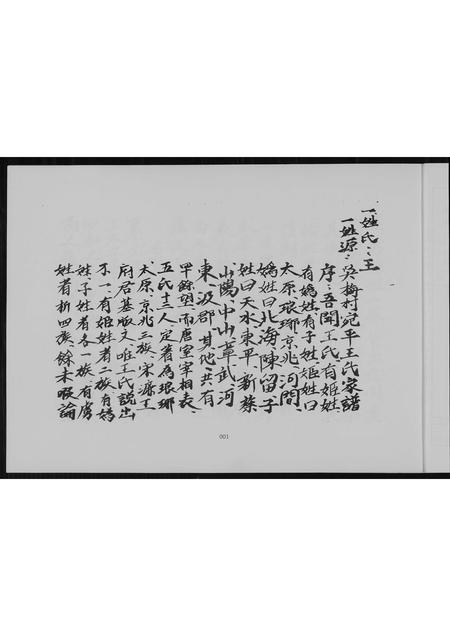 一姓氏:王
一姓源:吳梅村宛平王氏家譜
序:吾聞王氏有姬姓、
有媯姓、有子姓、姬姓曰
太原琅琊京兆河間、
媯姓曰北海陳留子
姓曰天水東平新蔡
山陽中山章武河
東汲郡其他共有
罕餘望而唐室宰相表、
五氏十三人定著為琅琊
太原京兆三族宋濂王
府君墓版文唯王氏説出
不一、有姬姓者二族有媯
姓、子姓者各一族有虜
姓者析四族餘未暇論
001